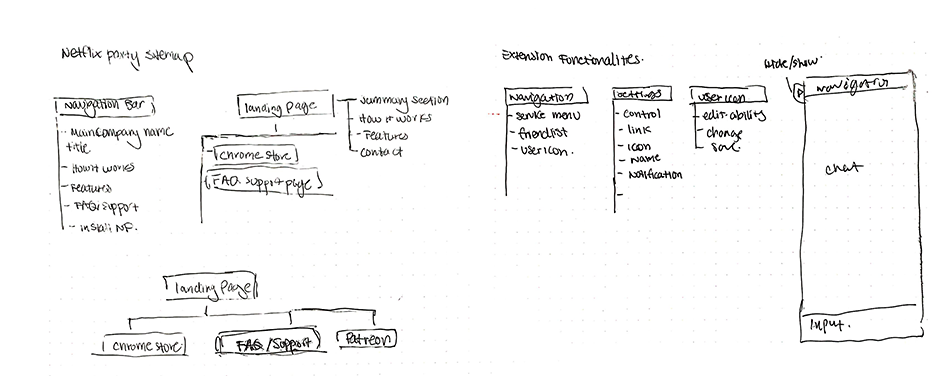 Netflix party sitemap
Navigation Bar
- Main Company name
title
- How it works
- Features
- FAQ/support
- install NP.
landing page
summary section
How it works
- Features
- contact
- Chrome store
FAQ support page
landing page
Chrome store
FAQ /Support
Patreon
Extension Functionalities.
Navigation
- service menu
- friendlist
- usericon.
settings
- control
- link
- icon
- Name
- Notification
-
usericon
- edit-ability
- change
- save
Hide/show.
navigation
chat
Input.